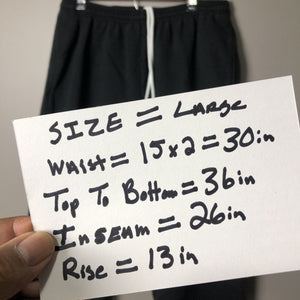 SIZE = LARGE
WAIST = 15x2=30in
Top To Bottom = 36in
Inseam = 26in
Rise = 13in